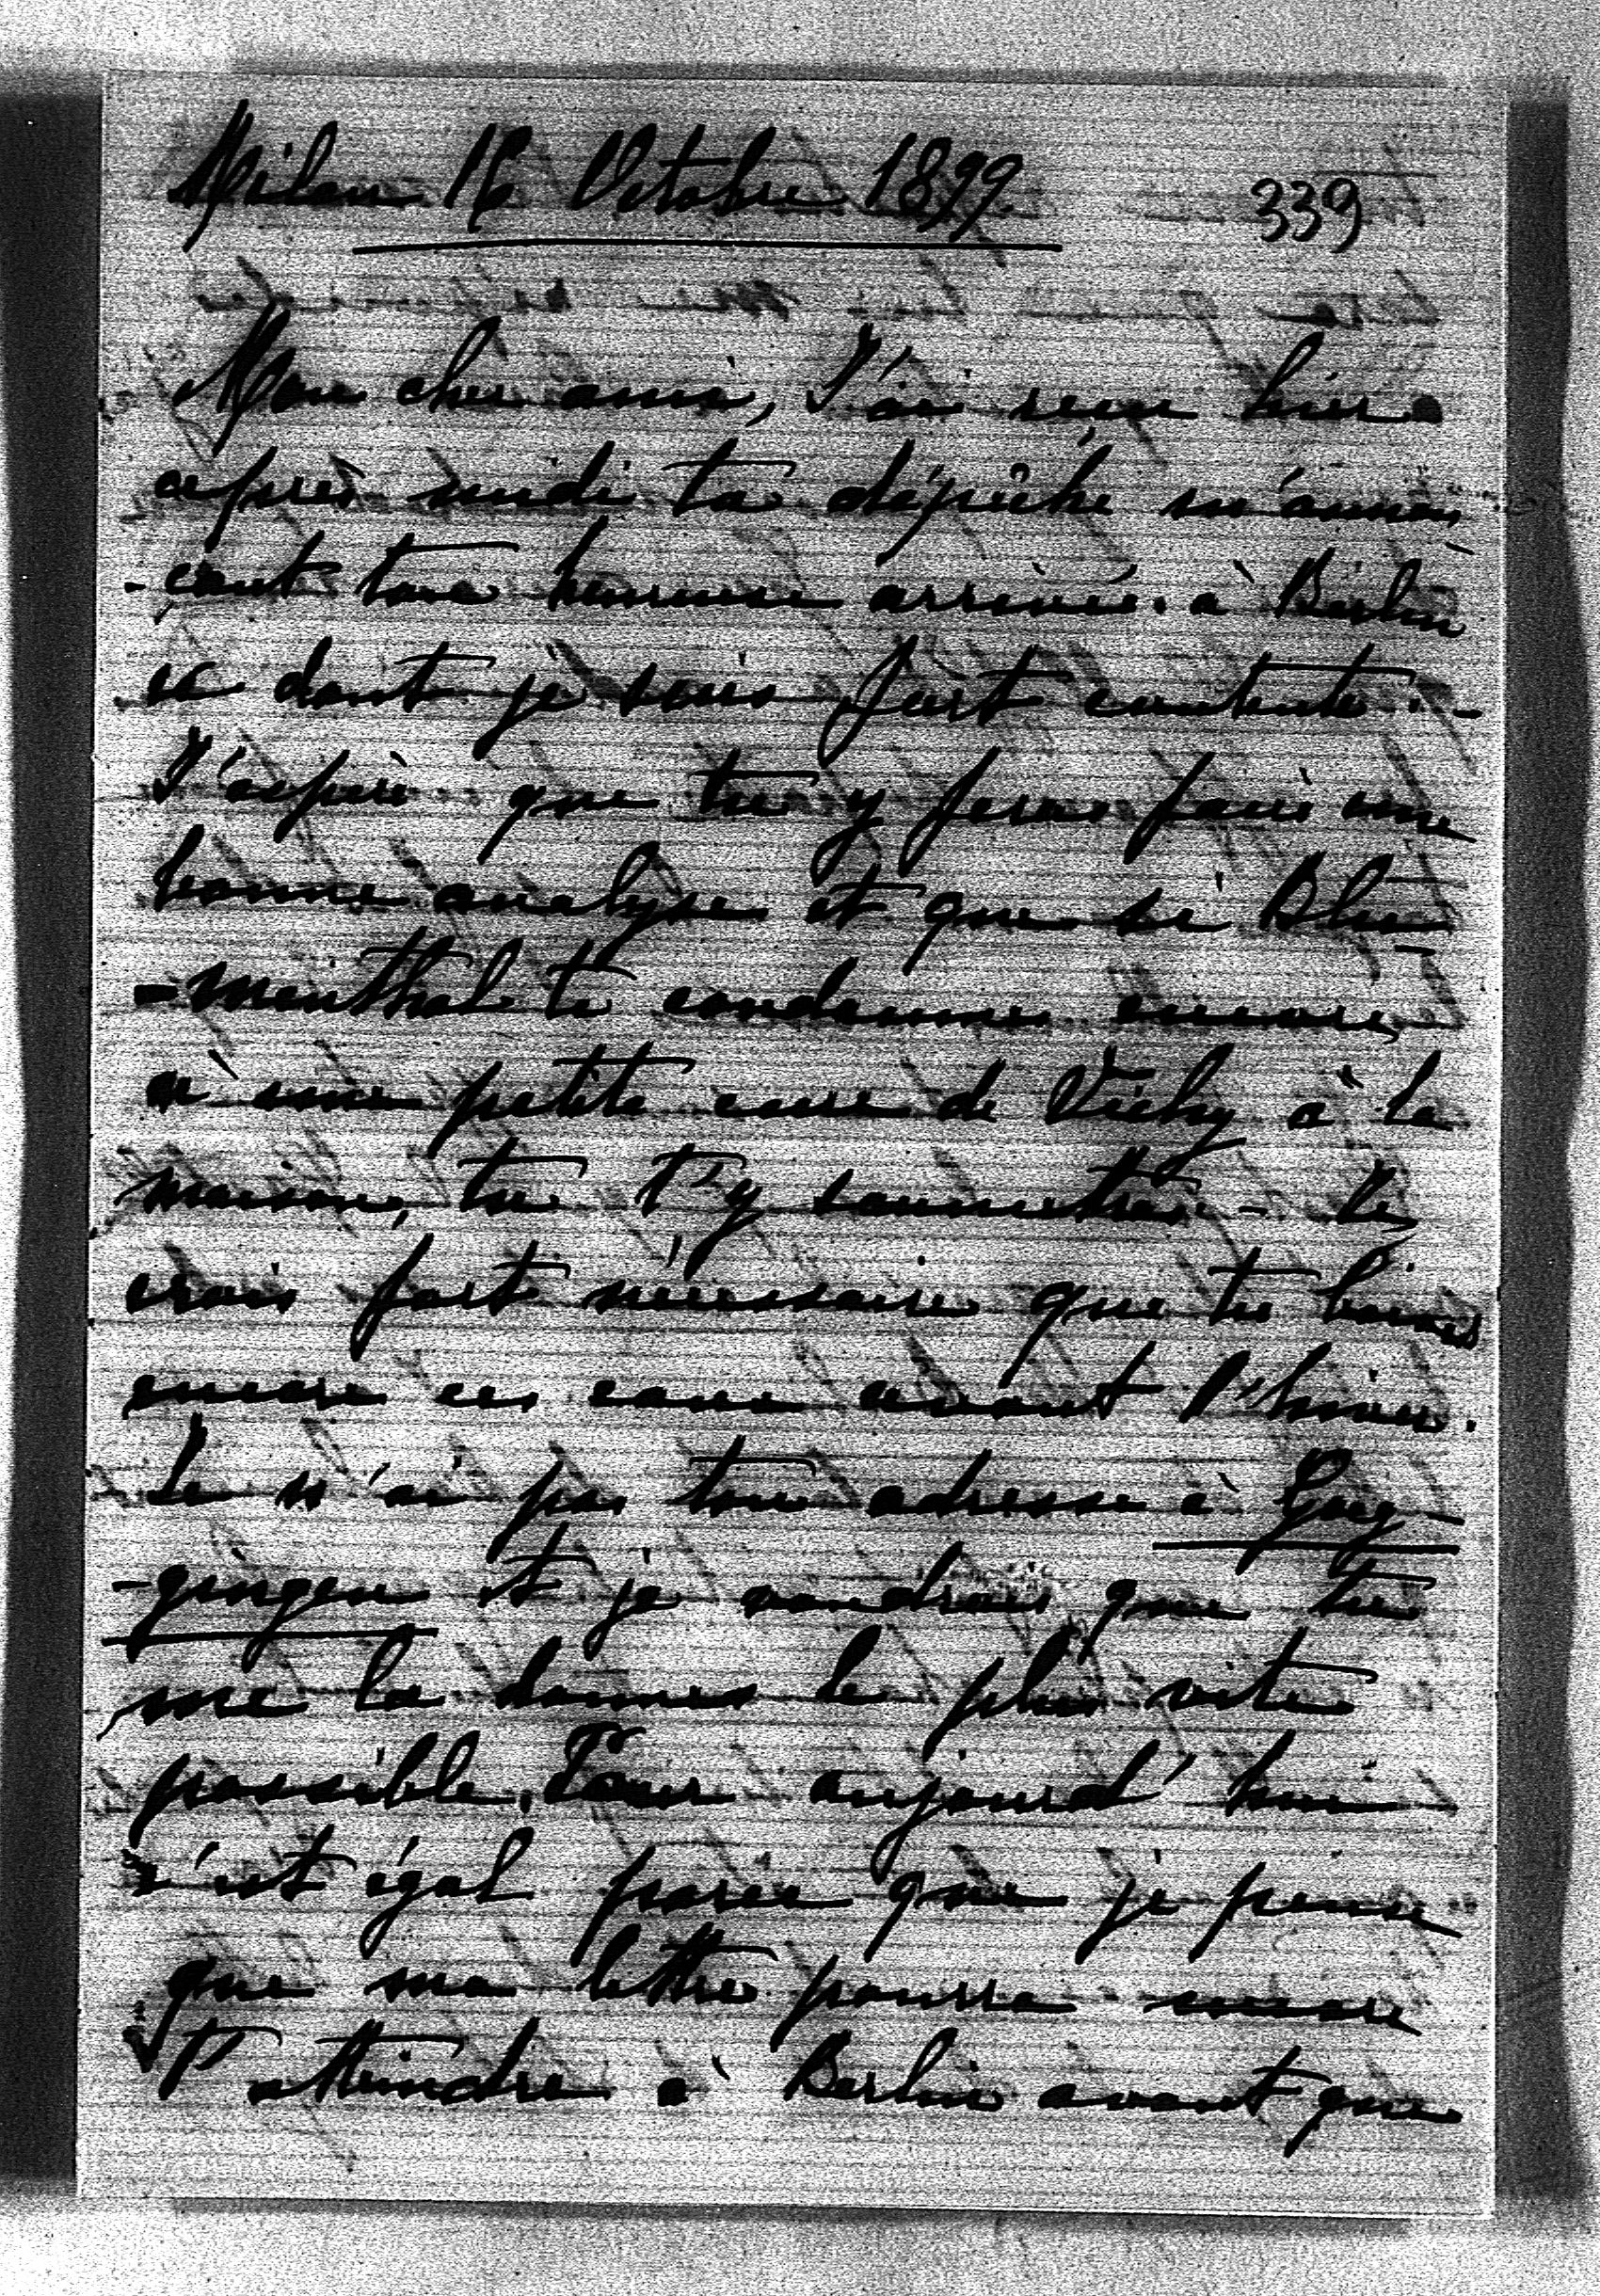 Milan 16 Octobre 1899.
339
Mon cher ami, J'ai reçu hier
après midi ta dépêche m'annon
-çant ton heureuse arrivée à Berlin
ce dont je suis fort contente. -
J'espère que tu y feras faire une
bonne analyse et que si Blu
-menthal te condamne encore
à une petite cure de Vichy à la
maison, tu t'y soumettras. - Je
crois fort nécessaire que tu boives
encore ces eaux avant l'hiver.
Je n'ai pas ton adresse à Gög
-gingen et je voudrais que tu
me la donnes le plus vite
possible. Pour aujourd'hui
c'est égal parce que je pense
que ma lettre pourra encore
t'atteindre à Berlin avant que